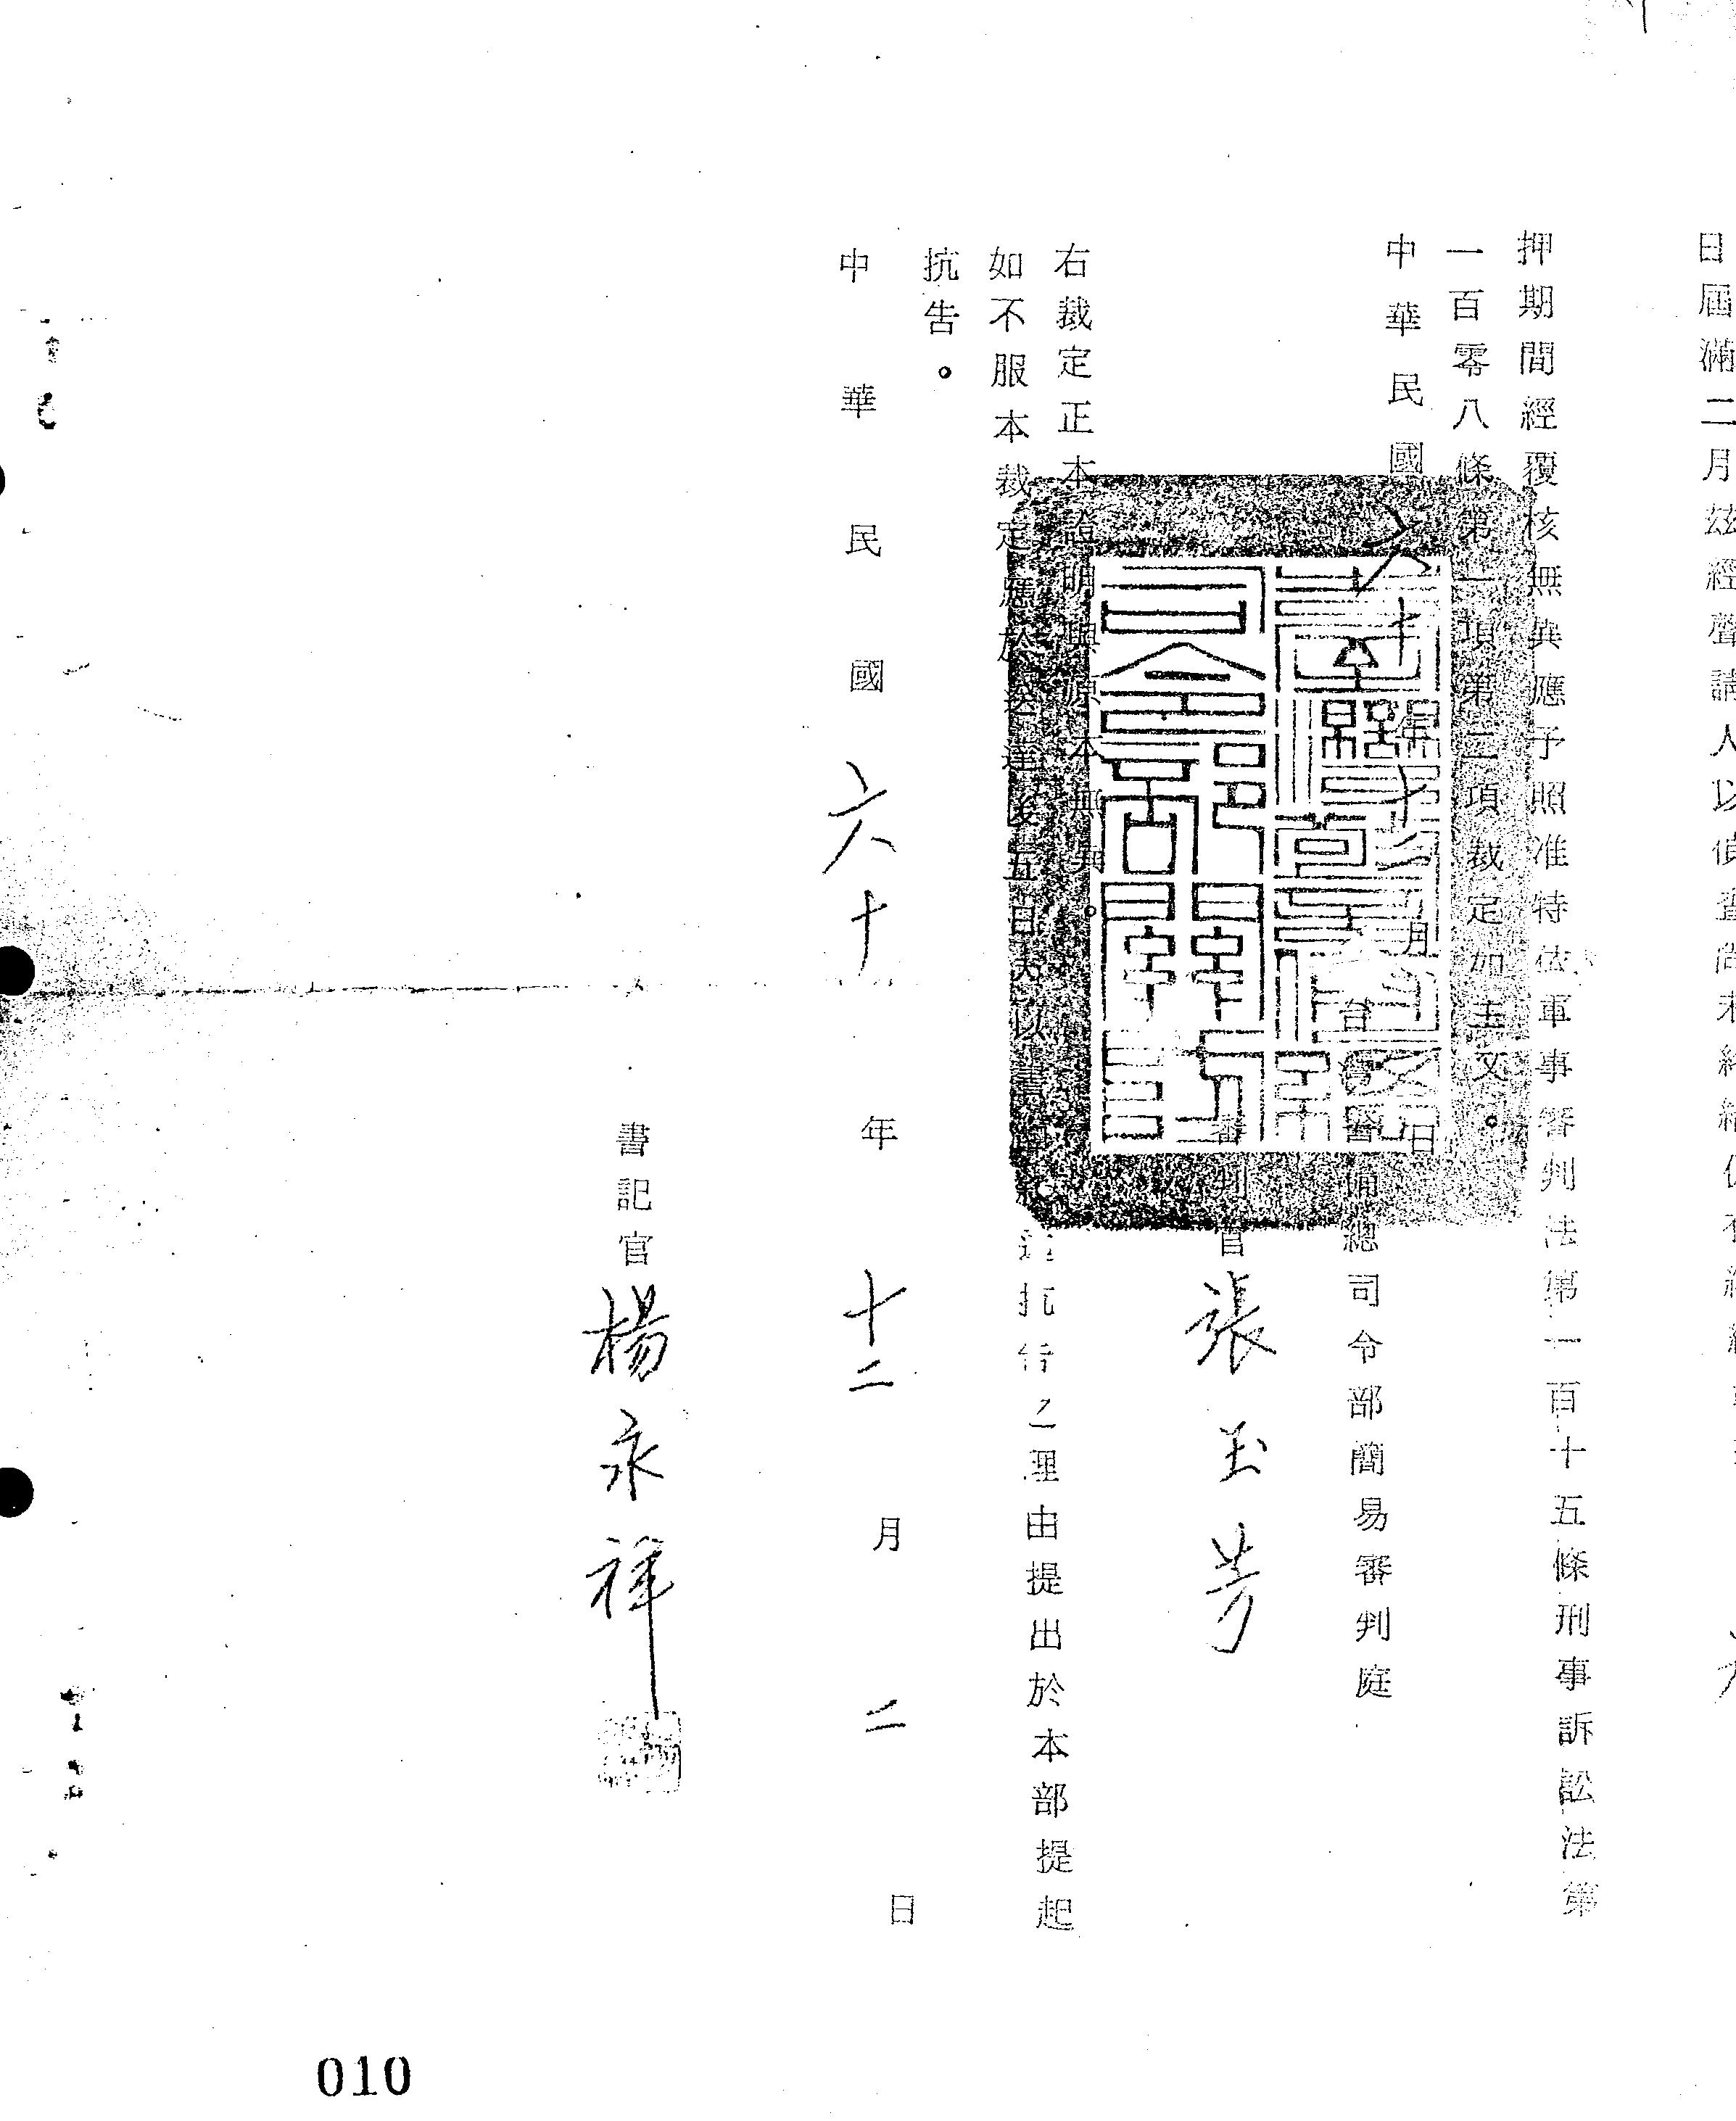 日屆滿二月茲經聲請人以偵查尚未終結仍有繼續
押期間經覆核無異應予照准特依軍事審判法第一百十五條刑事訴訟法第
一百零八條第一項第二項裁定如主文。
中華民國六十年十二月日
台灣警備總司令部簡易審判庭
審判官張玉芳
右裁定正本證明與原本無異。
如不服本裁定應於送達後五日內以書狀敘述抗告之理由提出於本部提起
抗告。
中華民國六十年十二月二日
書記官楊永祥
010